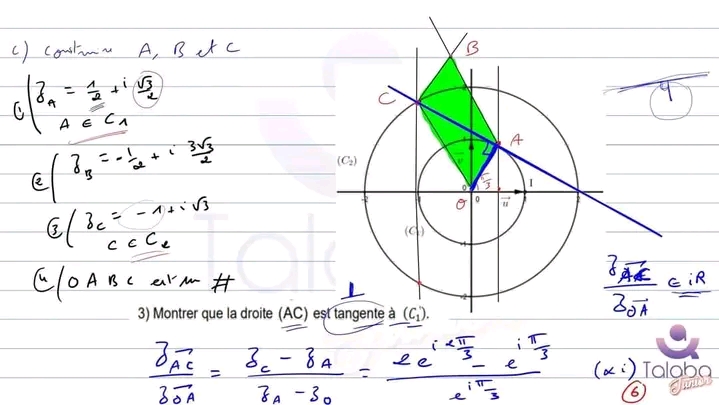 c) construire A, B et C
① z_A = 1/2 + i √3/2
A ∈ C1
② z_B = -1/2 + i 3√3/2
③ z_C = -1 + i √3
C ∈ C2
④ OABC est un #
B
C
A
(C₂)
π/3
O
0
u
1
2
-2
-1
(C₁)
-2
4
z_AC / z_OA ∈ iR
3) Montrer que la droite (AC) est tangente à (C₁).
z_AC / z_OA = (z_C - z_A) / (z_A - z_O) = (2e^{i2π/3} - e^{iπ/3}) / e^{iπ/3}
(αi)
Talaba
Junior
6